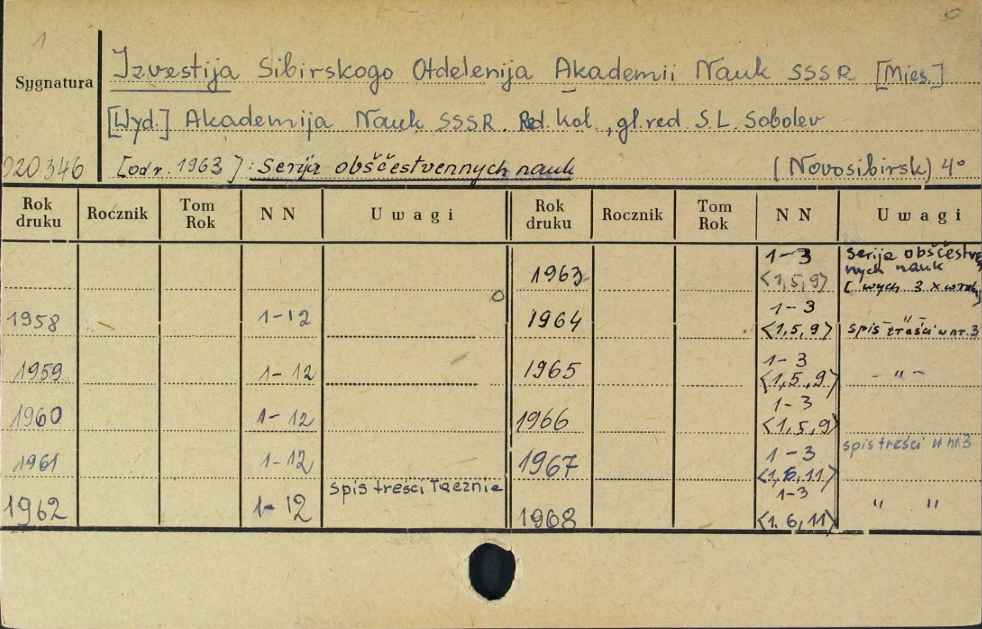 1
Sygnatura
Izvestija Sibirskogo Otdelenija Akademii Nauk SSSR [Mies.]
[Wyd.] Akademija Nauk SSSR. Red. Kol., gl. red. S. L. Sobolev
020346 [od r. 1963]: Serija obščestvennych nauk (Novosibirsk) 4°
Rok druku Rocznik Tom Rok NN Uwagi Rok druku Rocznik Tom Rok NN Uwagi
1963 1-3 <1,5,9> Serija obščestvennych nauk [wych 3 x w
1958 1-12 1964 1-3 <1,5,9> spis treści w nr. 3
1959 1-12 1965 1-3 <1,5,9> - " -
1960 1-12 1966 1-3 <1,5,9>
1961 1-12 1967 1-3 <1,6,11> spis treści w nr. 3
1962 1-12 spis treści łącznie 1968 1-3 <1,6,11> " "